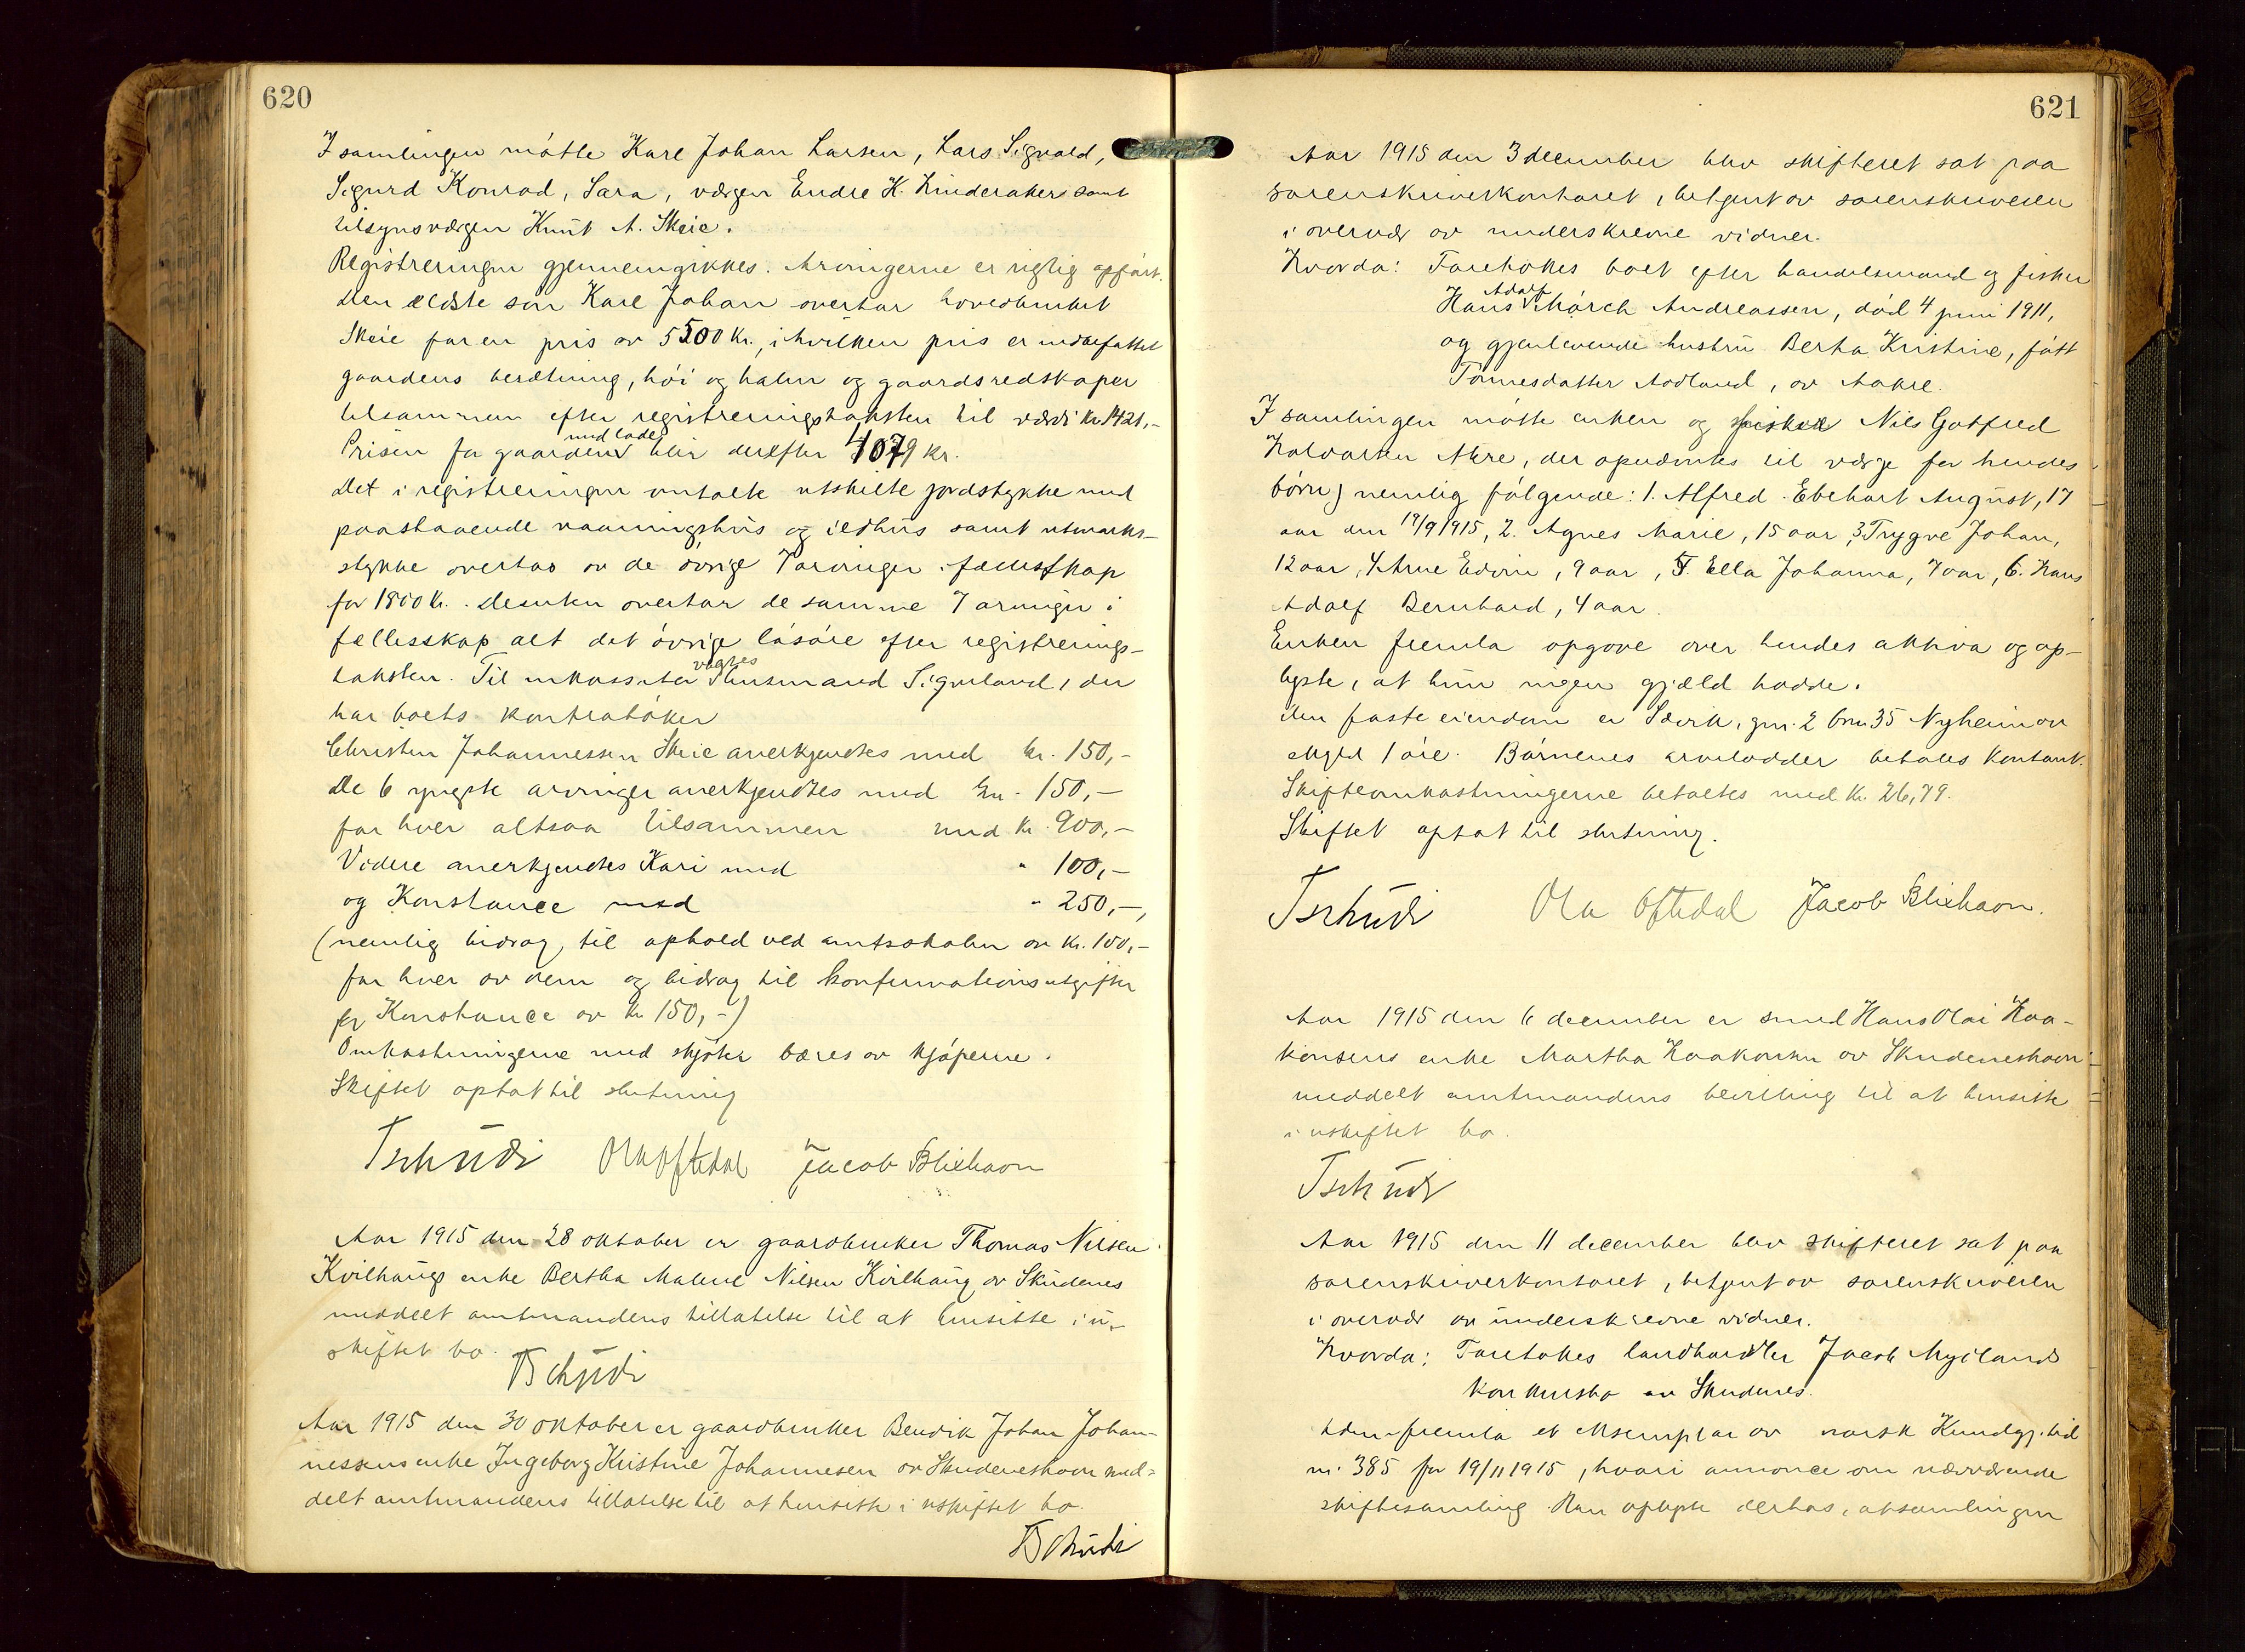 620
I samlingen møtte Karl Johan Larsen, Lars Sigvald,
Sigurd Konrad, Sara, vergen Endre H. Linderaker samt
tilsynsvergen Knut A. Skeie.
Registreringen gjennemgikkes. Arvingerne er rigtig opført.
Den ældste søn Karl Johan overtar hovedbruket
Skeie for en pris av 5500 kr., i hvilken pris er indbefattet
gaardens besætning, høi og halm og gaardsredskaper
tilsammen efter registreringstaksten til værdi kr. 1421,-
Prisen for gaarden med lade blir derefter 4079 kr.
Det i registreringen omtalte utskilte jordstykke med
paastaaende vaaningshus og ildhus samt utmarks-
stykke overtas av de øvrige 7 arvinger i fællesskap
for 1800 kr. Desuten overtar de samme 7 arvinger i
fellesskap alt det øvrige løsøre efter registrerings-
taksten. Til inkassator valgtes lensmand Sigveland, der
har boets kontrabøker
Christen Johannessen Skeie anerkjendtes med kr. 150,-
De 6 yngste arvinger anerkjendtes med kr. 150,-
for hver altsaa tilsammen med kr. 900,-
Videre anerkjendtes Kari med " 100,-
og Konstance med " 250,-,
(nemlig bidrag til ophold ved amtsskolen av kr. 100,-
for hver av dem og bidrag til konfirmationsutgifter
for Konstance av kr 150,-)
Omkostningerne med skjøter bæres av kjøperne.
Skiftet optat til slutning
Tschudi Ola Oftedal Jacob Blixhavn
Aar 1915 den 28 oktober er gaardbruker Thomas Nilsen
Kvilhaugs enke Bertha Malene Nilsen Kvilhaug av Skudenes
meddelt amtmandens tillatelse til at hensitte i u-
skiftet bo.
Tschudi
Aar 1915 den 30 oktober er gaardbruker Bendik Johan Johan-
nessens enke Ingeborg Kristine Johannesen av Skudeneshavn med-
delt amtmandens tillatelse til at hensitte i uskiftet bo.
Tschudi
621
Aar 1915 den 3 december blev skifteret sat paa
sorenskriverkontoret, betjent av sorenskriveren
i overvær av underskrevne vidner.
Hvorda: Foretokes boet efter handelsmand og fisker
Hans Adolf Mørch Andreassen, død 4 juni 1911,
og gjenlevende hustru Berta Kristine, født
Tønnesdatter Aadland, av Aakre.
I samlingen møtte enken og fisker Nils Gotfred
Halvorsen Akre, der opnævntes til verge for hendes
børn, nemlig følgende: 1. Alfred Ebehart August, 17
aar den 19/9 1915, 2. Agnes Marie, 15 aar, 3 Trygve Johan,
12 aar, 4. Arne Edvin, 9 aar, 5. Ella Johanna, 7 aar, 6. Hans
Adolf Bernhard, 4 aar.
Enken fremla opgave over hendes aktiva og op-
lyste, at hun ingen gjæld hadde.
Den faste eiendom er Sævik, gnr. 2 brn. 35 Nyheim av
skyld 1 øre. Børnenes arvelodder betales kontant.
Skifteomkostningerne betaltes med kr. 26,79.
Skiftet optat til slutning.
Tschudi Ola Oftedal Jacob Blixhavn.
Aar 1915 den 6 december er smed Hans Olai Haa-
konsens enke Martha Haakonsen av Skudeneshavn
meddelt amtmandens bevilling til at hensitte
i uskiftet bo.
Tschudi
Aar 1915 den 11 december blev skifteret sat paa
sorenskriverkontoret, betjent av sorenskriveren
i overvær av underskrevne vidner.
Hvorda: Foretokes landhandler Jacob Mydlands
konkursbo av Skudenes.
Adm. fremla et eksemplar av norsk Kundgj. tid
nr. 385 for 19/11 1915, hvori annonce om nærværende
skiftesamling. Han oplyste derhos, at samlingen